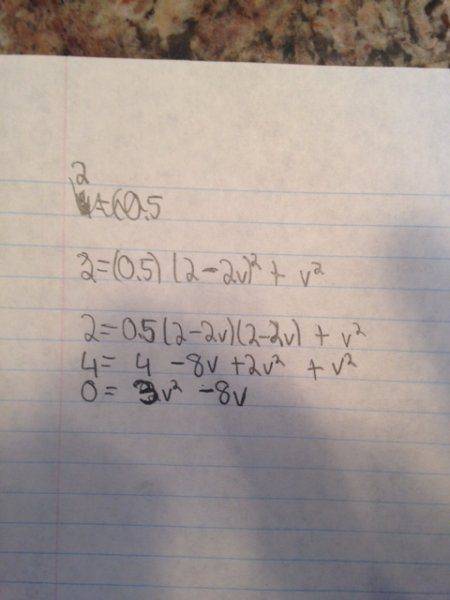 2
2=(0.5)(2-2v)² + v²
2=0.5(2-2v)(2-2v) + v²
4= 4 -8v +2v² + v²
0= 3v² -8v